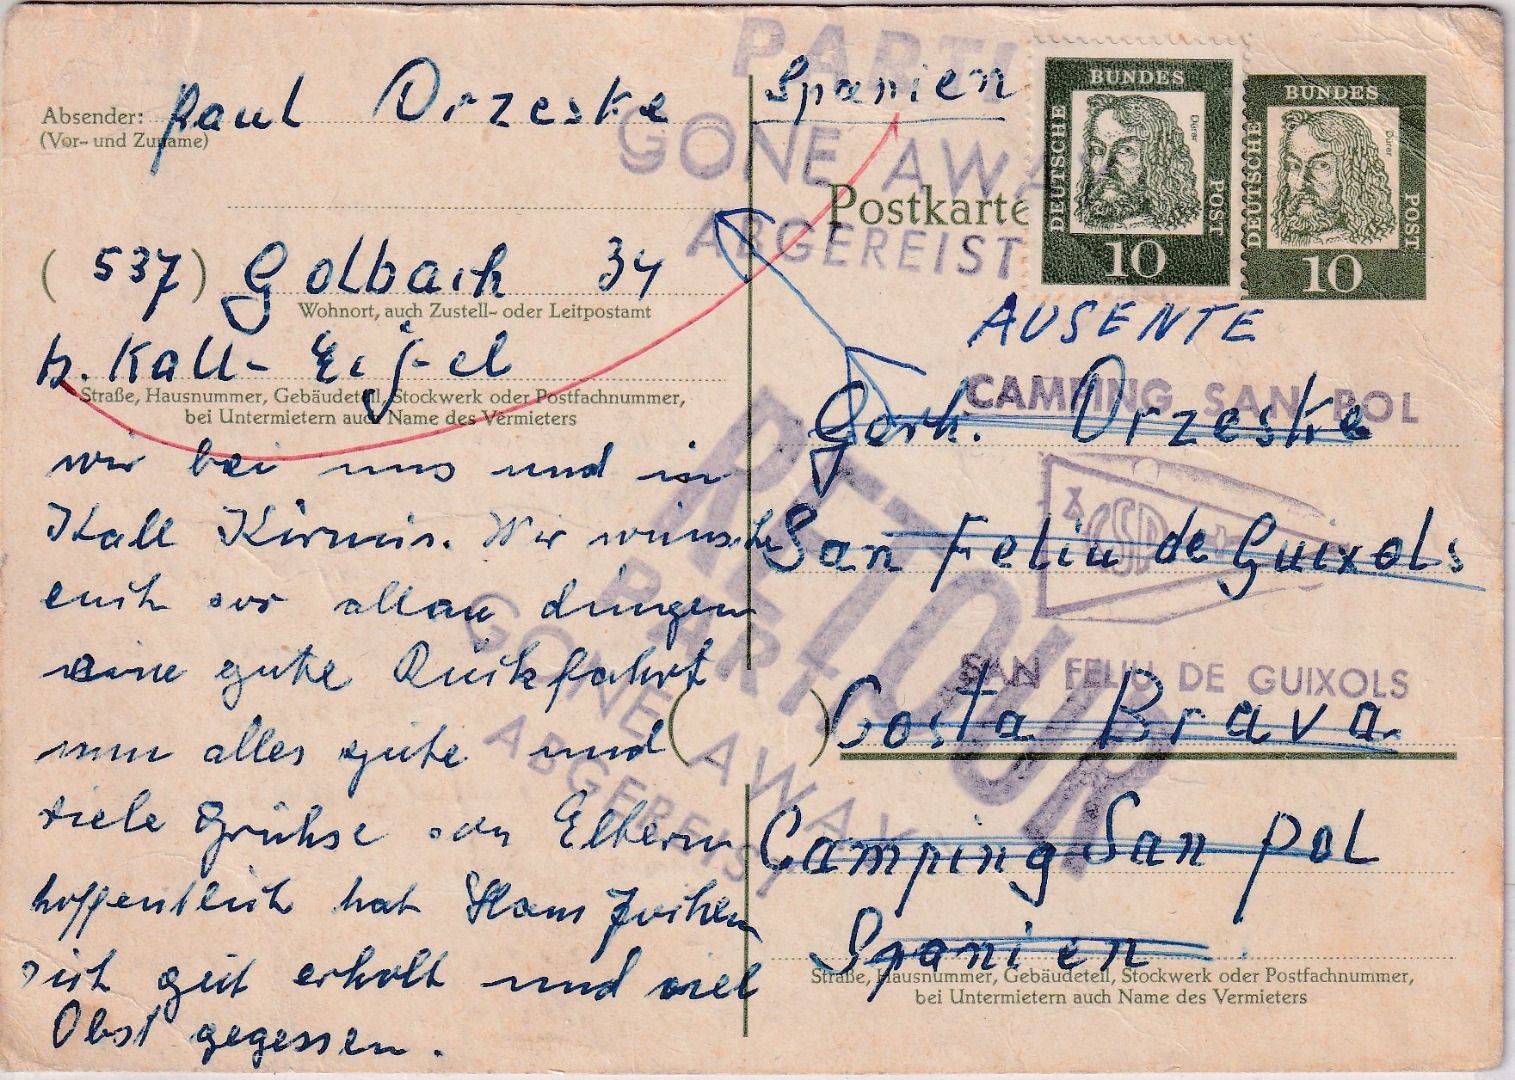 Absender: Paul Orzeske
(Vor- und Zuname)
(537) Golbach 34
Wohnort, auch Zustell- oder Leitpostamt
b. Kall- Eifel
Straße, Hausnummer, Gebäudeteil, Stockwerk oder Postfachnummer,
bei Untermietern auch Name des Vermieters
wir bei uns und in
Kall Kirmis. Wir wünsche
euch vor allen dingen
eine gute Rückfahrt
nun alles gute und
viele Grühse von Eltern
hoffentlich hat Hans Jochen
sich gut erholt und viel
Obst gegessen.
Spanien
PARTI
GONE AWAY
ABGEREIST
Postkarte
BUNDES
DEUTSCHE
POST
Dürer
10
BUNDES
DEUTSCHE
POST
Dürer
10
AUSENTE
CAMPING SAN POL
Gerh. Orzeske
CSP
San Feliu de Guixols
SAN FELIU DE GUIXOLS
Costa Brava
Camping San Pol
Spanien
Straße, Hausnummer, Gebäudeteil, Stockwerk oder Postfachnummer,
bei Untermietern auch Name des Vermieters
RETOUR
PARTI
GONE AWAY
ABGEREIST